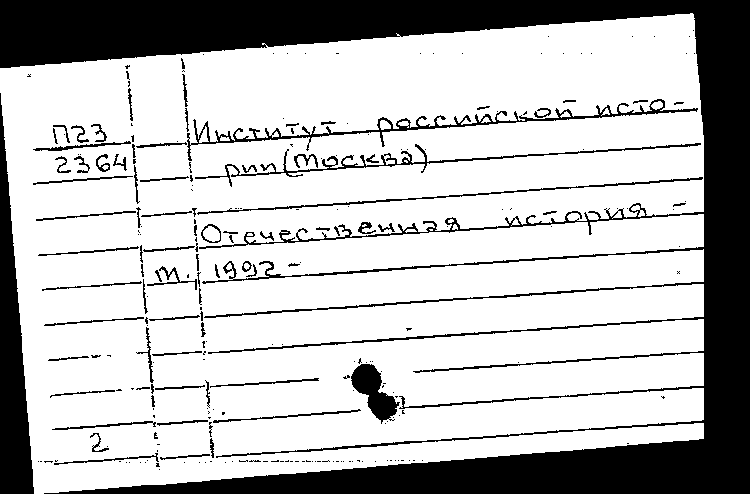 П23 Институт российской исто-
2364 рии (Москва)
Отечественная история -
м. 1992 -
2